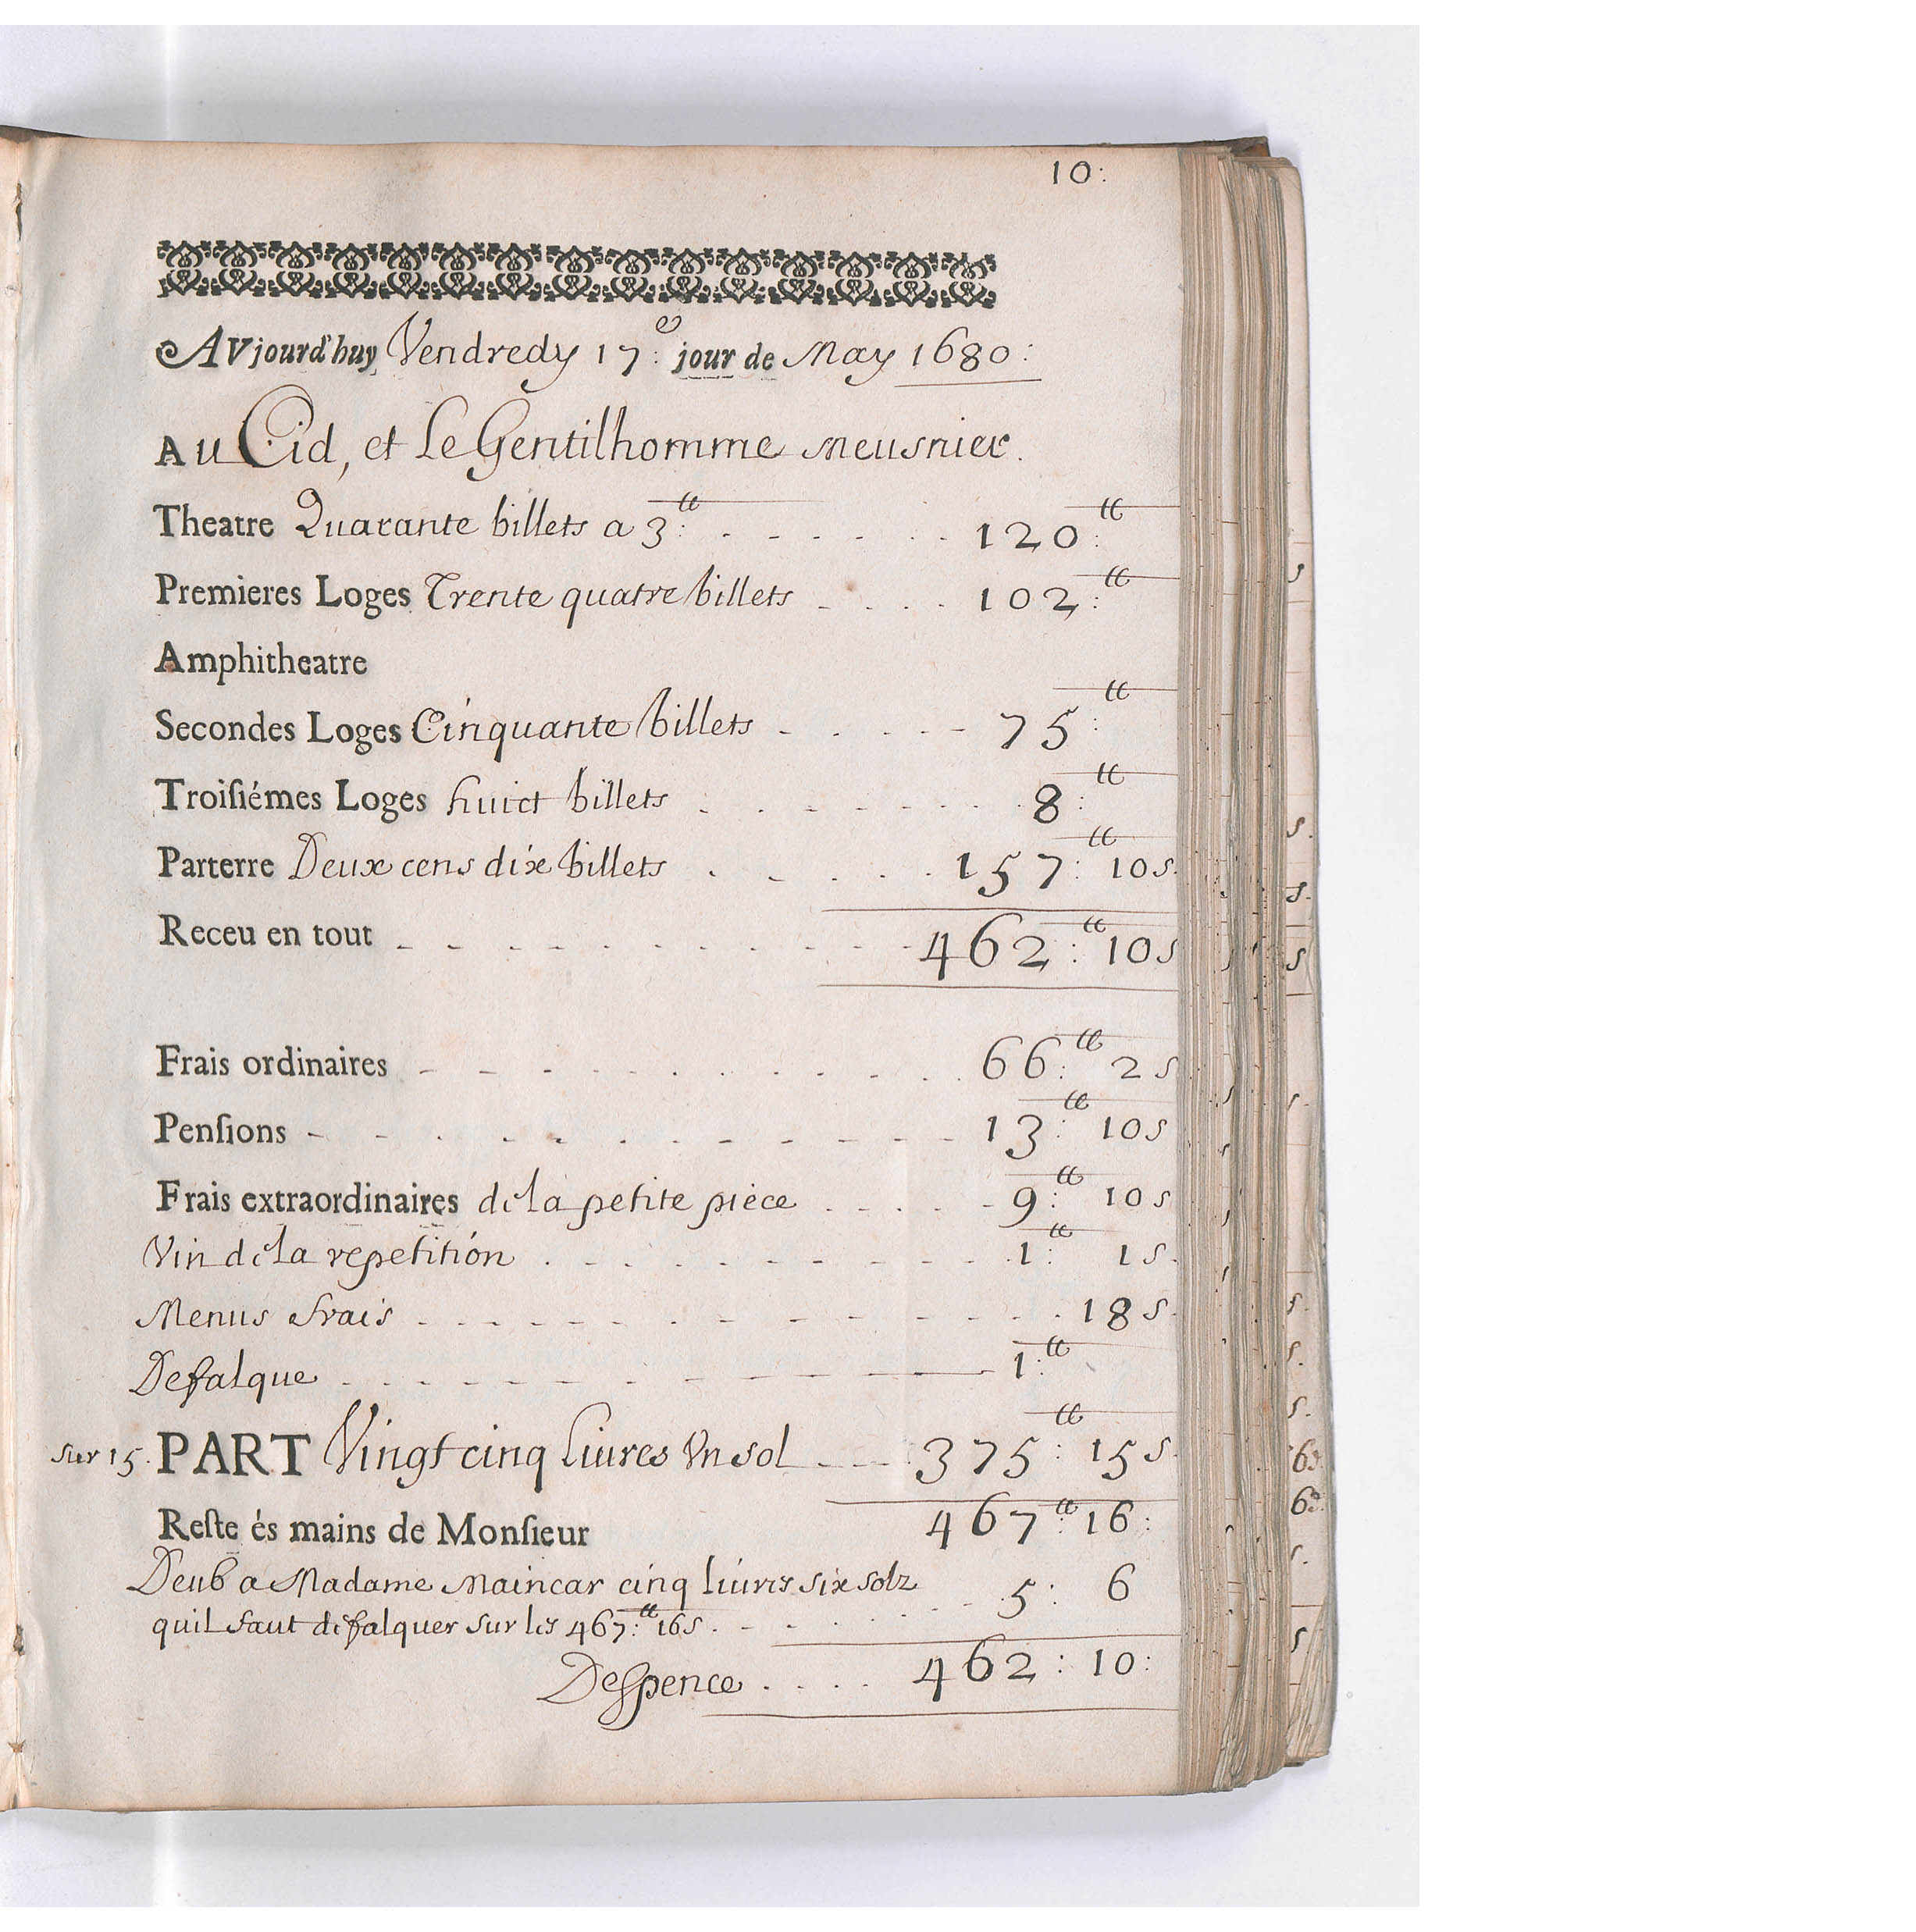 10:
AVjourd'huy Vendredy 17:e jour de May 1680:
Au Cid, et Le Gentilhomme Meusnier.
Theatre Quarante billets a 3:tt . - . - . . . 120:tt
Premieres Loges Trente quatre billets - . . . 102:tt
Amphitheatre
Secondes Loges Cinquante billets - . . . - - 75:tt
Troisiémes Loges huict billets . . . - - - . 8:tt
Parterre Deux cens dix billets . . . . . . 157:tt 10s.
Receu en tout - - . - . - . - . - - 462:tt 10s
Frais ordinaires - - - . - . . . - . . 66:tt 2s
Pensions - - - . - . - . - - - 13:tt 10s
Frais extraordinaires de la petite piece . . . . - 9:tt 10s
Vin de la repetition . . - . - . - - - 1:tt 1s.
Menus frais . - - - - . - . - - . 18s.
Defalque . . - - - - . - - 1:tt
Sur 15. PART Vingt cinq Liures Vn sol - - - 375:tt 15s.
Reste és mains de Monsieur 467:tt 16:
Deub a Madame Maincar cinq liures six solz
quil faut defalquer sur les 467:tt 16s. - - . . . - - 5: 6
Despence . . . . 462: 10: